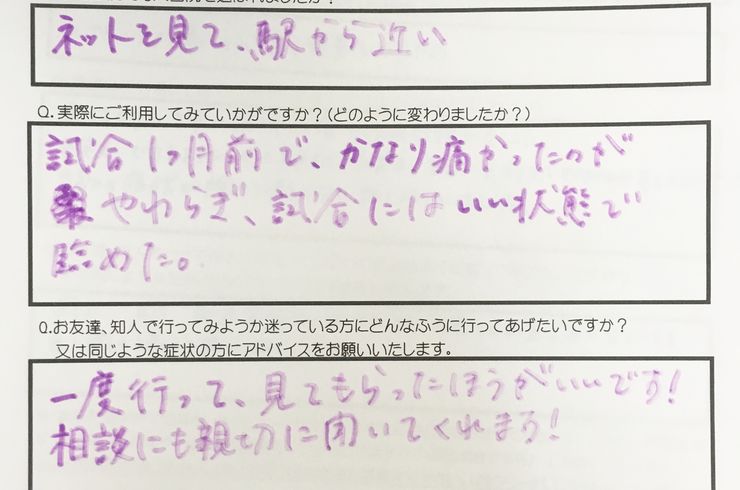 ネットを見て、駅から近い
Q.実際にご利用してみていかがですか？(どのように変わりましたか？)
試合1ヶ月前で、かなり痛かったのが
やわらぎ、試合にはいい状態で
臨めた。
Q.お友達、知人で行ってみようか迷っている方にどんなふうに行ってあげたいですか？
又は同じような症状の方にアドバイスをお願いいたします。
一度行って、見てもらったほうがいいです！
相談にも親切に聞いてくれます！